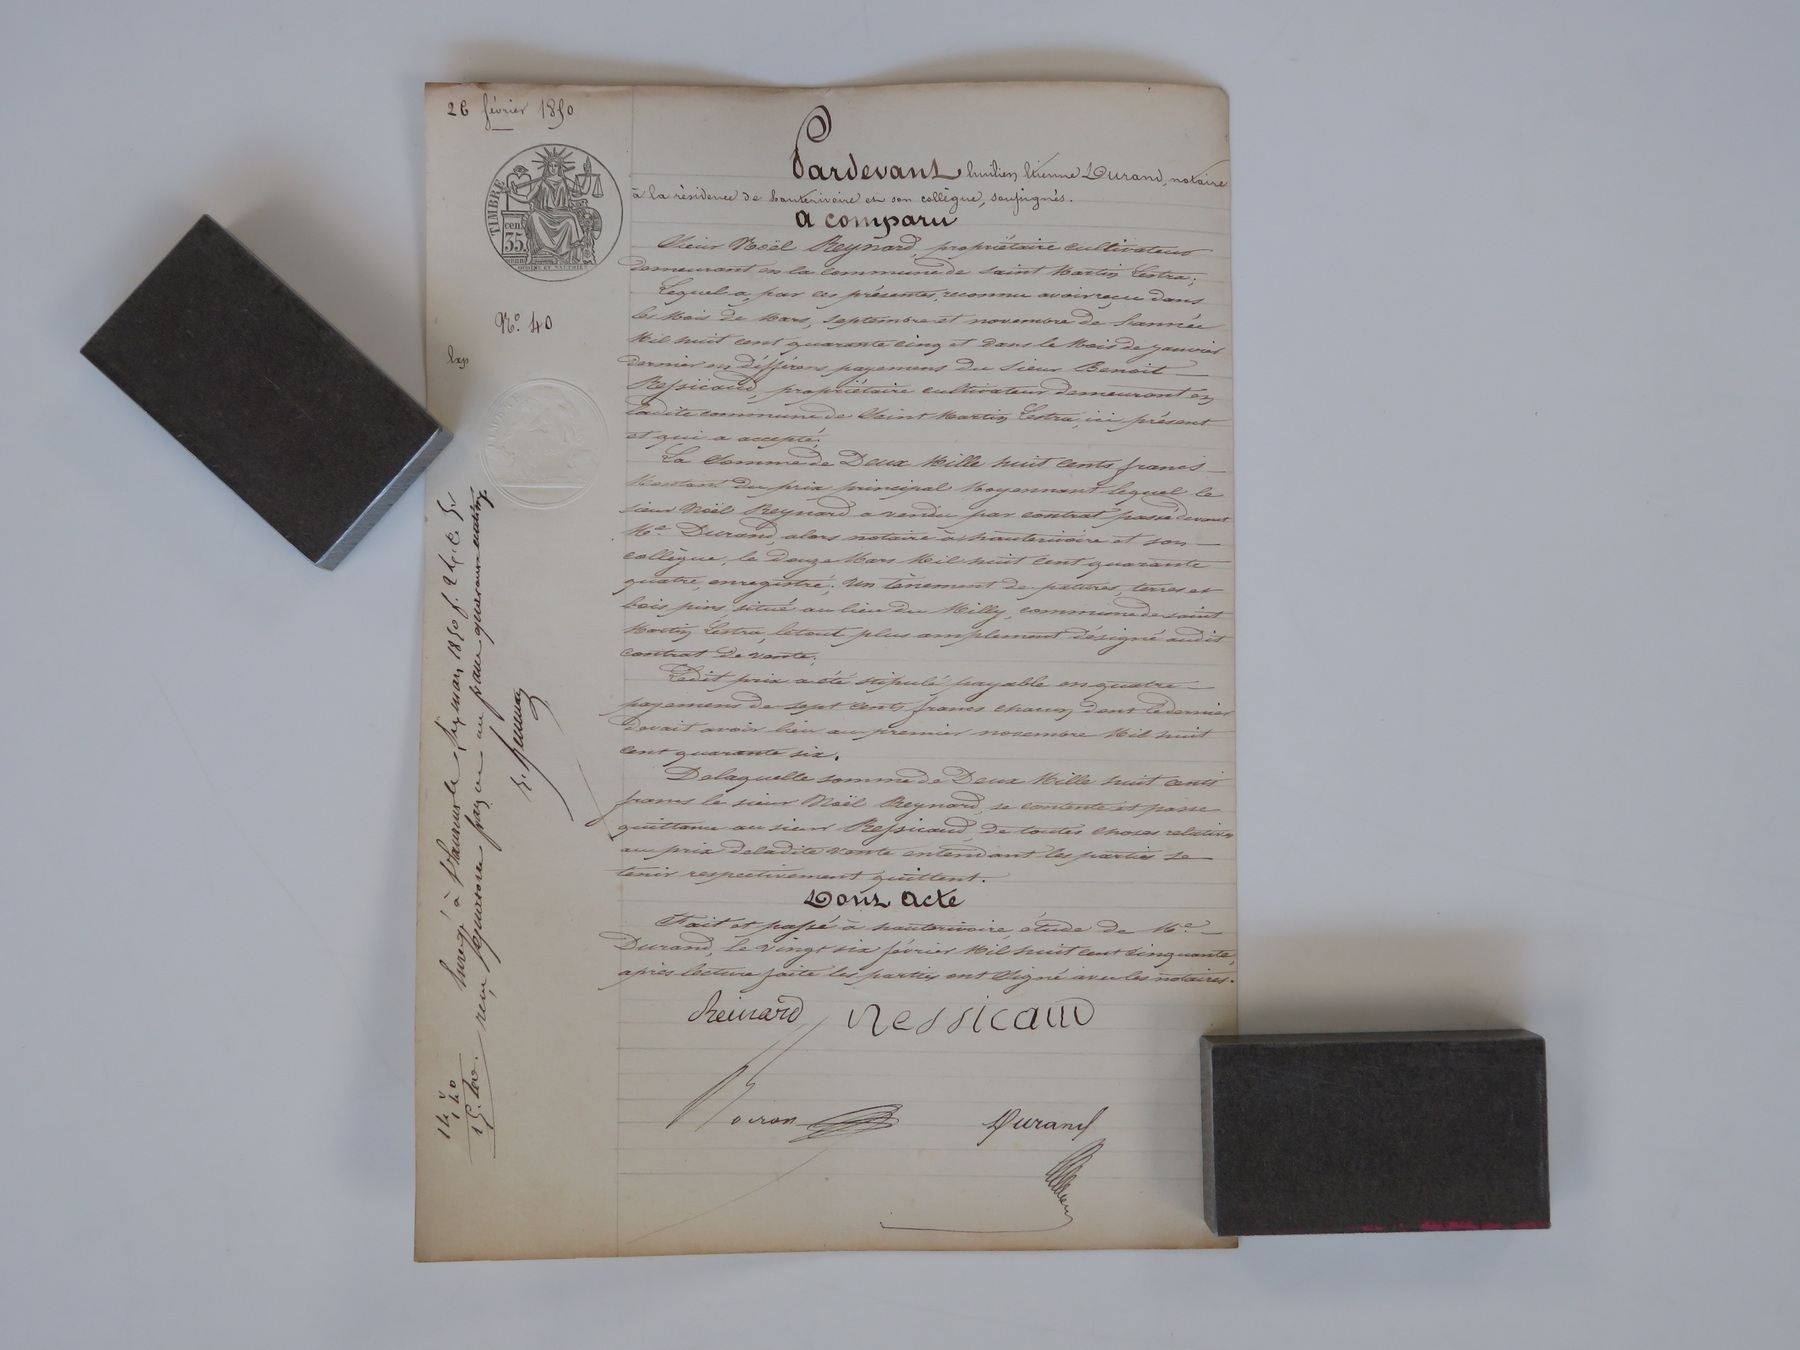 26 février 1850
TIMBRE
cen. 35
N.º 40
Exp
Pardevant Etienne Durand, notaire
à la résidence de hauterivoire et son collègue, soussignés.
a comparu
Sieur Noël Reynard, propriétaire cultivateur
demeurant en la commune de saint Martin Lestra;
Lequel a, par ces présentes, reconnu avoir reçu dans
les Mois de Mars, septembre et novembre de l'année
Mil huit cent quarante cinq et dans le Mois de janvier
dernier en différens payemens du sieur Benoit
Ressicaud, propriétaire cultivateur demeurant en
ladite commune de Saint Martin Lestra, ici présent
et qui a accepté;
La Somme de Deux Mille huit cents francs
Montant du prix principal Moyennant lequel le
sieur Noël Reynard a vendu par contrat passé devant
Me. Durand, alors notaire à hauterivoire et son
collègue, le douze Mars Mil huit cent quarante
quatre, enregistré; Un tènement de patures, terres et
bois pins, situé au lieu du Milly, commune de saint
Martin Lestra, le tout plus amplement désigné audit
contrat de vente;
Ledit prix a été stipulé payable en quatre
payemens de sept cents francs chacun dont le dernier
devait avoir lieu au premier novembre Mil huit
cent quarante six.
De laquelle somme de Deux Mille huit cents
francs le sieur Noël Reynard, se contente et passe
quittance au sieur Ressicaud, de toutes choses relatives
au prix de ladite vente entendant les parties se
tenir respectivement quittent.
Dont Acte
Fait et passé à hauterivoire, étude de Me.
Durand, le vingt six février Mil huit cent cinquante,
après lecture faite les parties ont signé avec les notaires.
Reinard Ressicaud
Noiron Durand
Enregé à St Laurent le six mars 1850 f.
reçu quatorze francs
14 "
1 40
15. 40